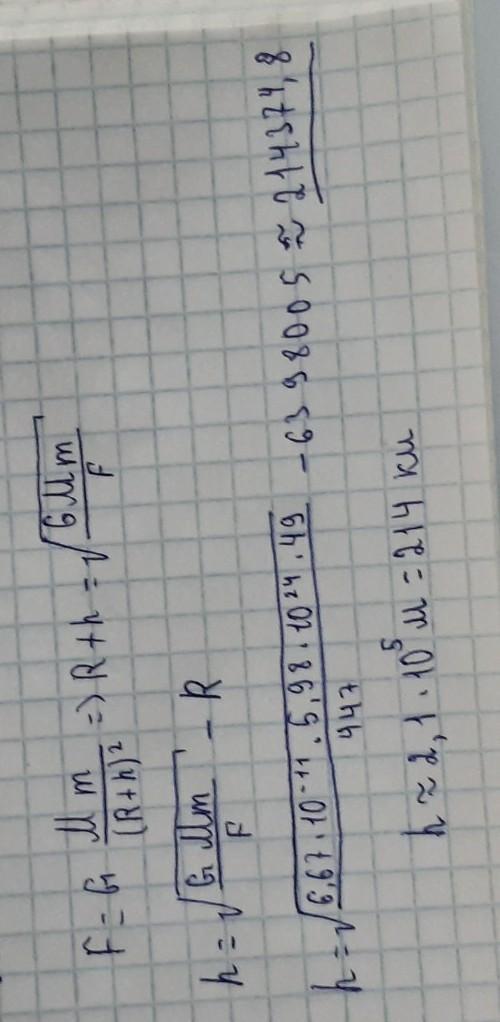 F = G Mm/(R+h)² => R+h = √(GMm/F)
h = √(GMm/F) - R
h = √(6,67·10⁻¹¹·5,98·10²⁴·49/447) - 6398005 ≈ 214374,8
h ≈ 2,1·10⁵ м = 214 км